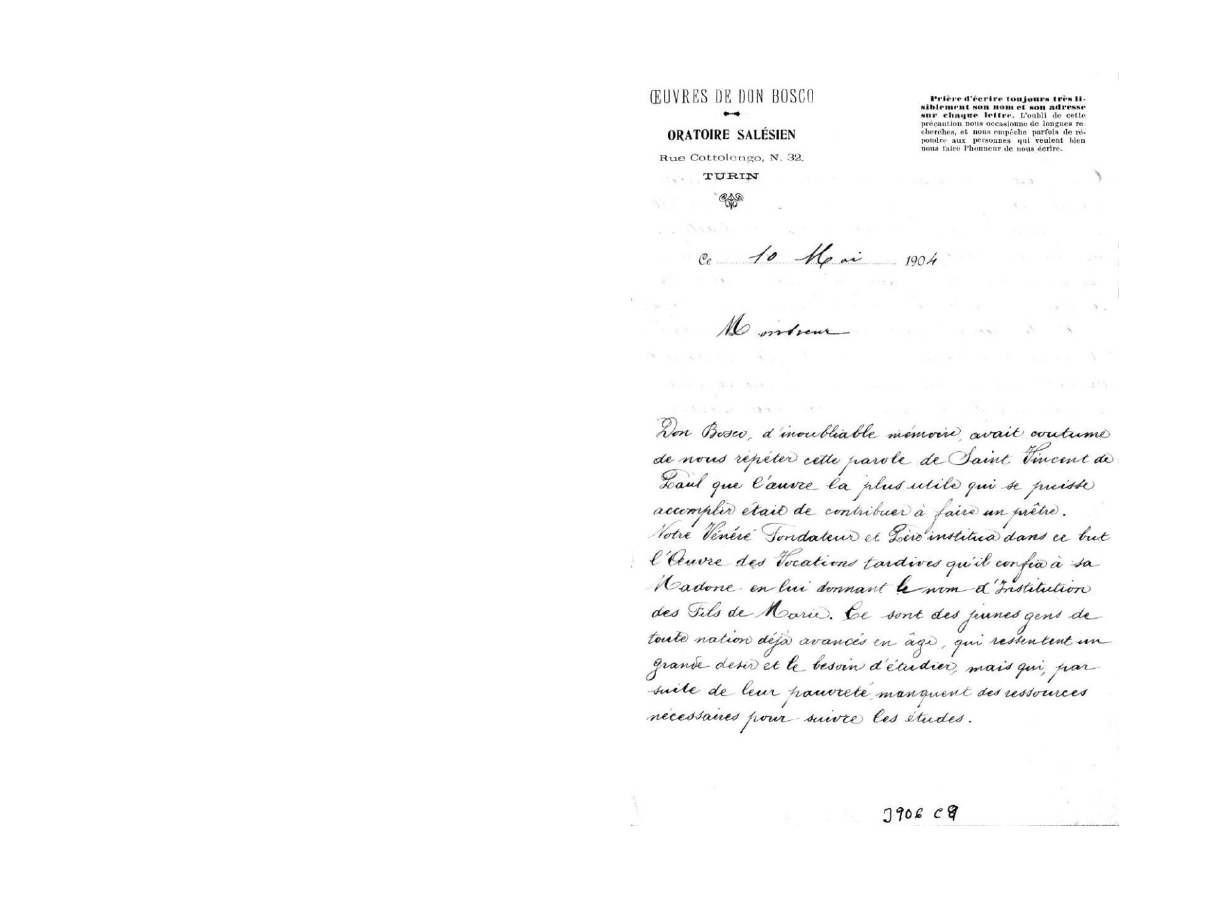 ŒUVRES DE DON BOSCO
ORATOIRE SALÉSIEN
Rue Cottolengo, N. 32.
TURIN
Prière d'écrire toujours très li-
siblement son nom et son adresse
sur chaque lettre. L'oubli de cette
précaution nous occasionne de longues re-
cherches, et nous empêche parfois de ré-
pondre aux personnes qui veulent bien
nous faire l'honneur de nous écrire.
Ce 10 Mai 1904
Monsieur
Don Bosco, d'inoubliable mémoire, avait coutume
de nous répéter cette parole de Saint Vincent de
Paul que l'œuvre la plus utile qui se puisse
accomplir était de contribuer à faire un prêtre.
Notre Vénéré Fondateur et Père institua dans ce but
l'Œuvre des Vocations tardives qu'il confia à sa
Madone en lui donnant le nom d'Institution
des Fils de Marie. Ce sont des jeunes gens de
toute nation déjà avancés en âge, qui ressentent un
grand desir et le besoin d'étudier, mais qui, par
suite de leur pauvreté, manquent des ressources
nécessaires pour suivre les études.